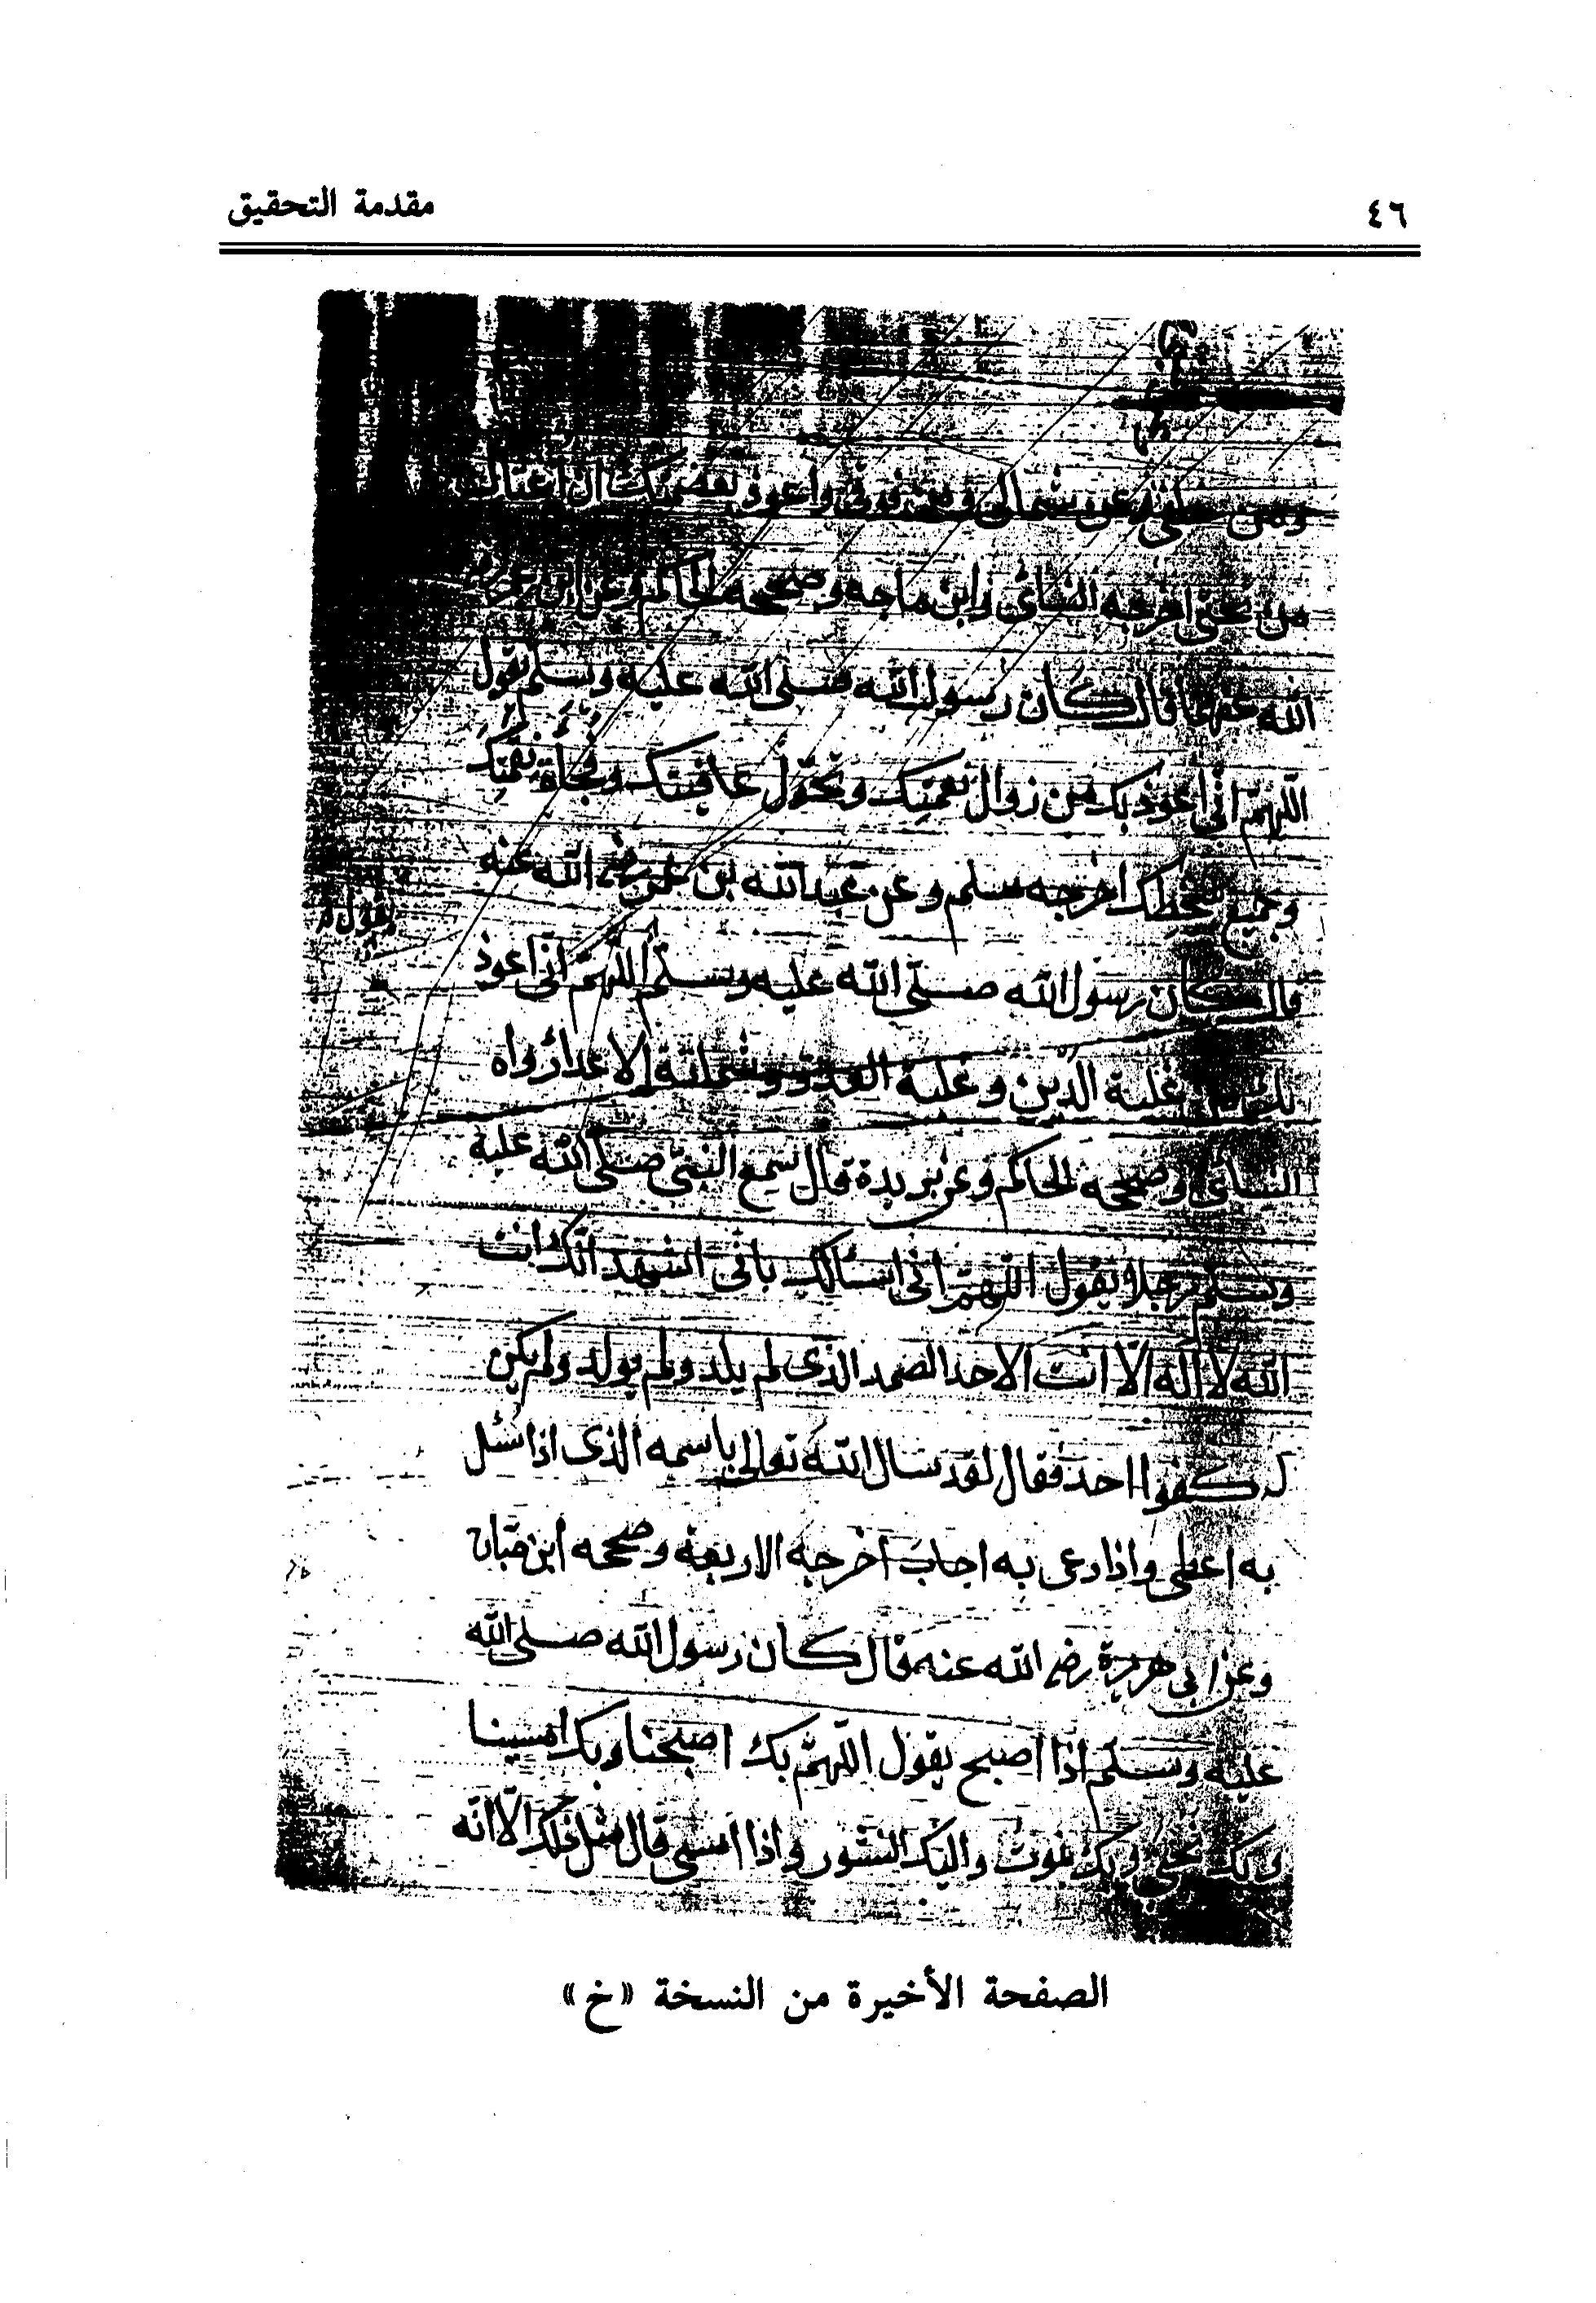 ٤٦ مقدمة التحقيق
ومن خلفي وعن شمالي ومن فوقي وأعوذ بعظمتك ان اغتال
من تحتي اخرجه النسائى وابن ماجه وصححه الحاكم وعن ابن عمر
الله عنهما قال كان رسول الله صلى الله عليه وسلم يقول
اللهم انى اعوذ بك من زوال نعمتك وتحوّل عافيتك وفجاة نقمتك
وجميع سخطك اخرجه مسلم وعن عبد الله بن عمر رضى الله عنه
يقول
قال كان رسول الله صلى الله عليه وسلم اللهم انى اعوذ
بك غلبة الدين وغلبة العدو وشماتة الاعداء رواه
النسائى وصححه الحاكم وعن بريدة قال سمع النبى صلى الله عليه
وسلم رجلا يقول اللهم انى اسئالك بانى اشهد انك انت
الله لا اله الّا انت الاحد الصمد الذى لم يلد ولم يولد ولم يكن
له كفوا احد فقال لقد سال الله تعالى باسمه الذى اذا سئل
به اعطى واذا دعى به اجاب اخرجه الاربعة وصححه ابن حبان
وعن ابى هريرة رضى الله عنه قال كان رسول الله صلى الله
عليه وسلم اذا اصبح يقول اللهم بك اصبحنا وبك امسينا
وبك نحيى وبك نموت واليك النشور واذا امسى قال مثل ذلك الّا انّه
الصفحة الأخيرة من النسخة «خ»